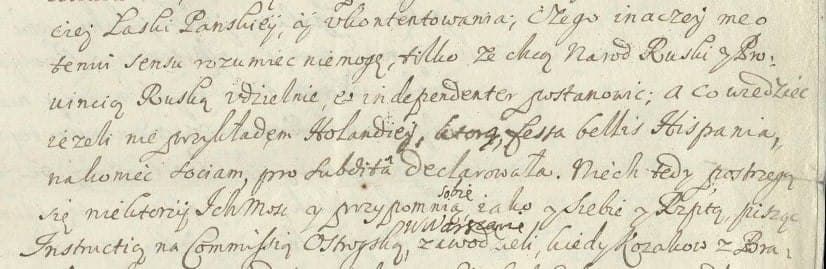 ciej Laski Panskiey, ij vkontentowania; Czego inaczey me o
temi sensu rozumiec niemogę, tilko ze chcą Narod Ruski y Pro-
vincią Ruską vdzielnie, et independenter postanowic; a co wiedziec
iezeli nie przykładem Holandiey, ktorą, fessa bellis Hispania,
nakoniec sociam, pro subditâ declarowała. Niech tedy postrzegą
się niektorzy Ich Mosc y przypomnią sobie iako y siebie y Rzptę, pisząc
w Warszawie
Instructią na Commissią Ostrogską, zawodzieli, kiedy Kozakow z Bra-